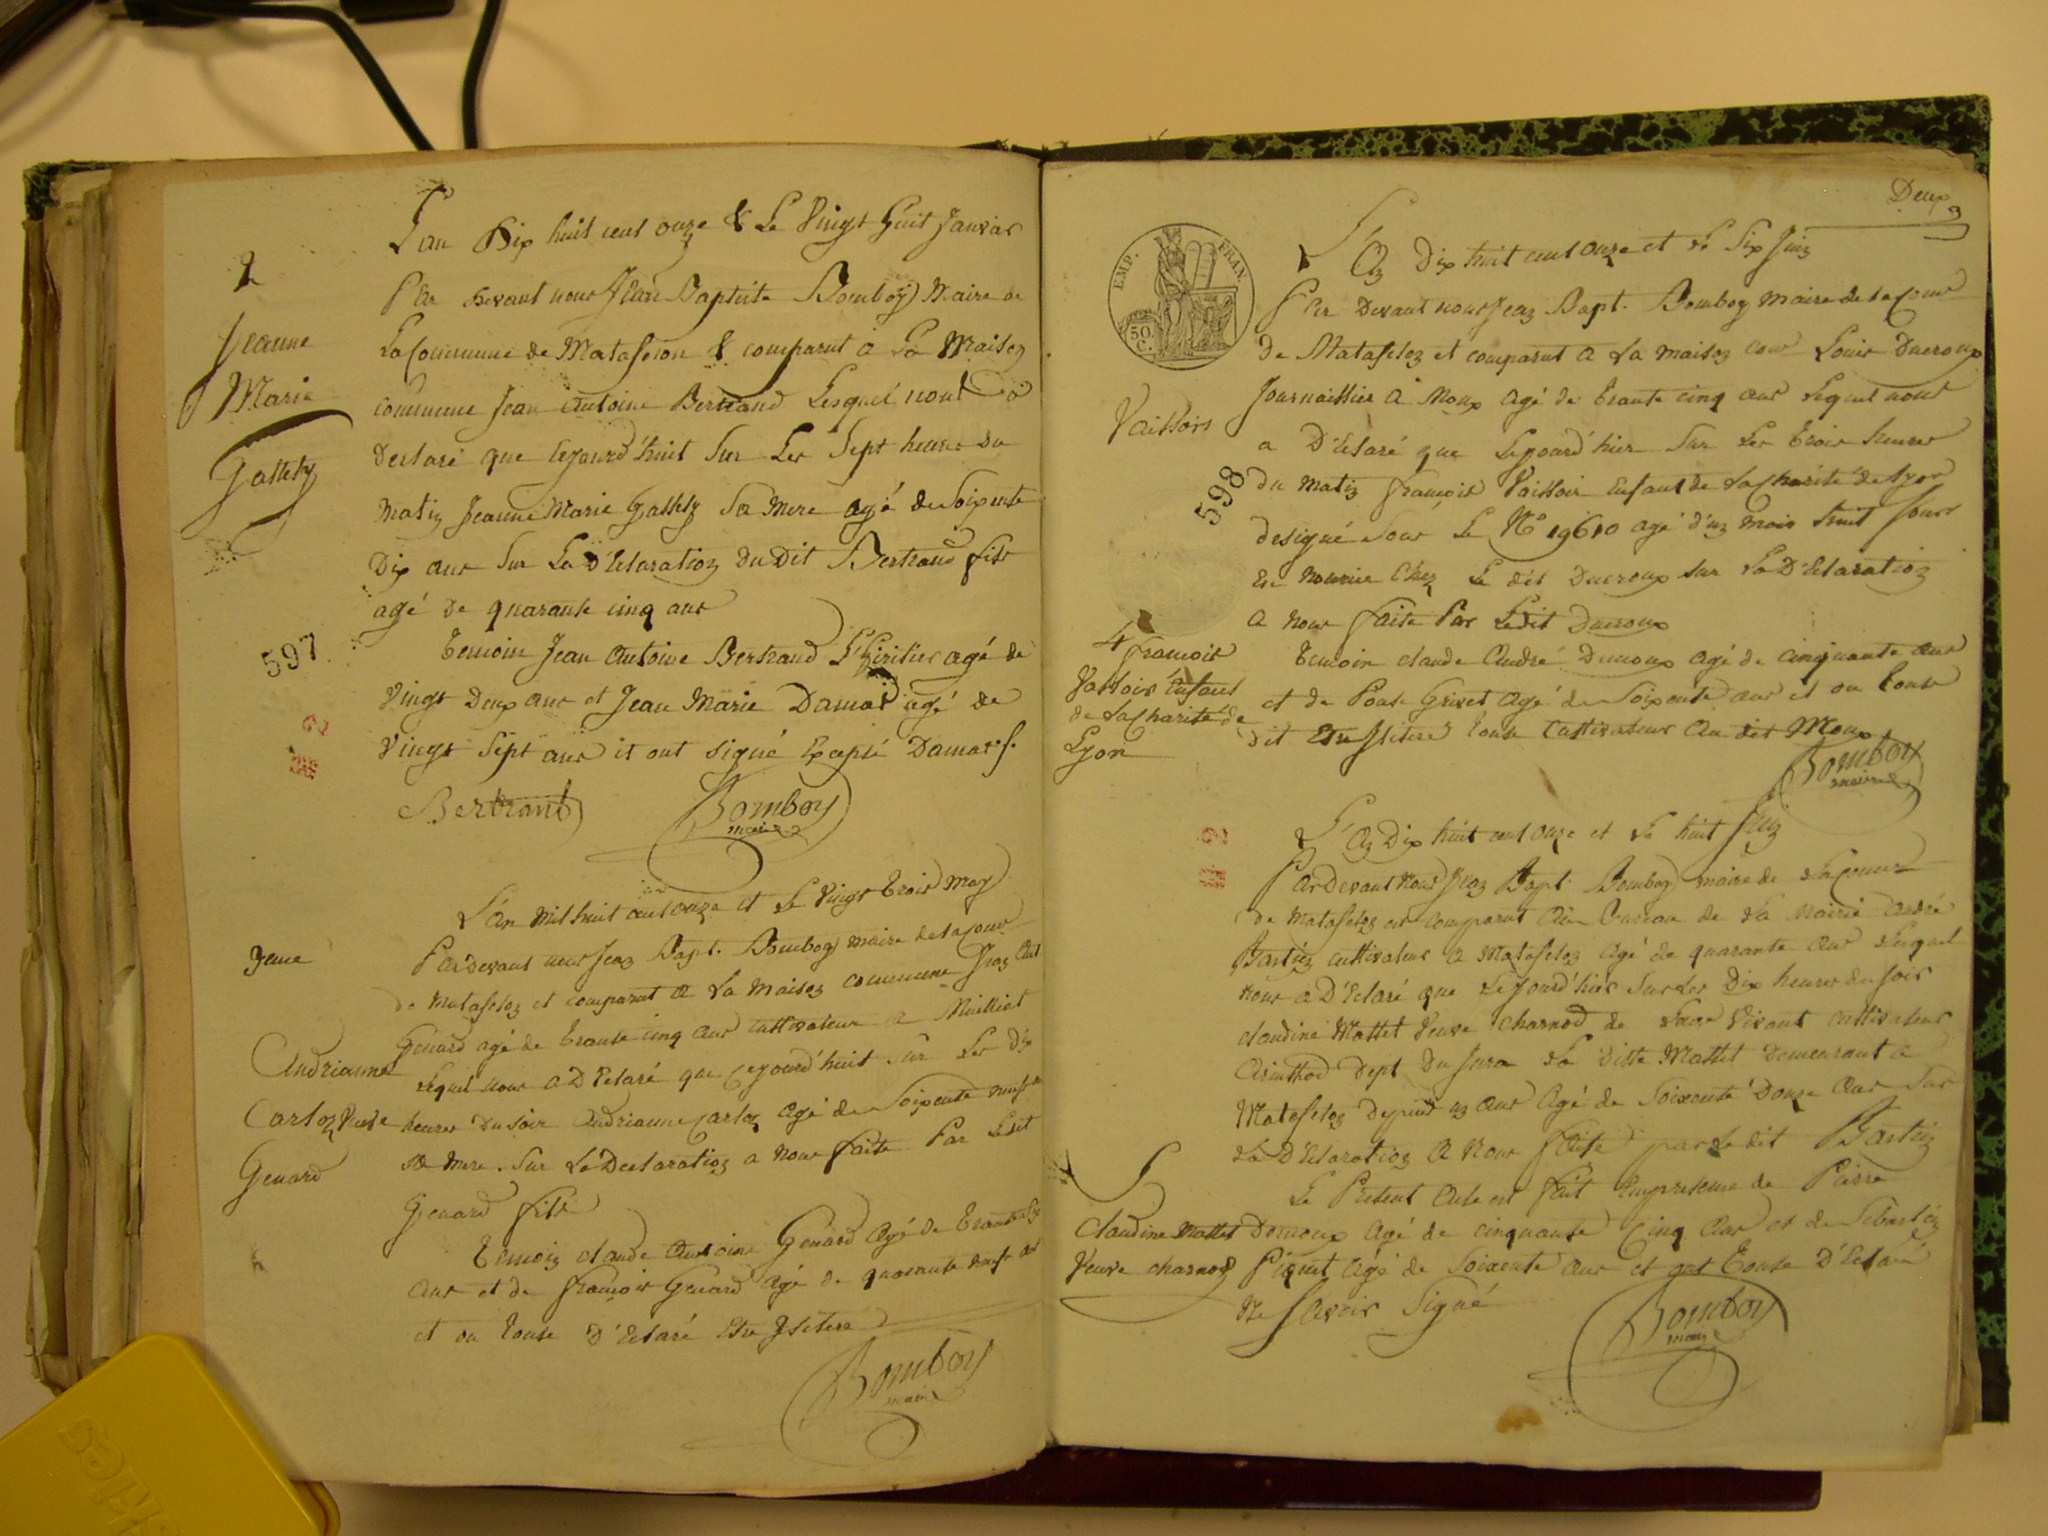 L'an Dix huit cent onze & Le Vingt huit Janvier
Par devant nous Jean Baptiste Bomboy Maire de
La Commune de Matafelon & comparut a La Maison
commune Jean Antoine Bertrand Lesquel nous a
Declaré que cejourd'huit Sur Les Sept heures du
matin Jeanne Marie Gallety Sa Mere agé de Soixente
Dix ans Sur La D'Eclaration du Dit Bertrand fils
agé de quarante cinq ans
Temoin Jean Antoine Bertrand L'Hiritier agé de
Vingt Deux ans et Jean Marie Damas agé de
Vingt Sept ans it ont signé Excepté Damas
Bertrand Bomboy
maire
2
Jeanne
Marie
Gallety
597
L'an mil huit cent onze et Le Vingt Trois may
Pardevant nous Jean Bapt. Bomboy maire de la Com
de matafelon et comparut a La maison commune Jean Ant
Genard agé de trante cinq ans cultivateur a
Lequel nous a D'Eclaré que cejourd'huit sur Les Dix
heures du soir Andrianne Carloz agé de Soixente neuf
sa mere. Sur La Declaration a nous faite Par Ledit
Genard fils
Temoin claude Antoine Genard agé de trante Six
ans et de françois Genard agé de quarante neuf ans
et on tous D'Eclaré Estre Jlitere
Bomboy
maire
Andrianne
Carloz Veuve
Genard
Deux
EMP. FRAN.
50 C.
L'An Dix huit cent onze et le Six Juin
Par Devant nous Jean Bapt. Bomboy maire de la Com
De Matafelon et comparut a La maison com Louis Ducroux
Journaillier a Moux agé de trante cinq ans Lequel nous
a D'Eclaré que Lejourd'hier Sur Les trois heures
du matin françois Vaissoir Enfant de La Charité de Lyon
designé Sous Le N° 19610 agé d'un mois huit Jours
En nourrice Chez Le dit Ducroux sur La D'Eclaration
a nous faite Par Ledit Ducroux
Temoin claude André Ducroux agé de cinquante ans
et de Grivet agé de Soixente ans et on tous
dit Estre Jlitere tous Cultivateur au dit Moux
Bomboy
maire
Vaissoir
598
4 françois
Vaissoir Enfant
de La Charité de
Lyon
L'An Dix huit cent onze et Le huit Juin
Pardevant nous Jean Bapt. Bomboy maire de La Comm
de matafelon est comparut au Bureau de La Mairie André
Bastien cultivateur a Matafelon agé de quarante ans Lequel
nous a D'Eclaré que Lejourd'hier Sur Les Dix heures du soir
claudine Mattet Veuve charnod de Vivant cultivateur
Arinthod Dept Du Jura La ditte Mattet Demeurant a
Matafelon Depuis un ans Agé de Soixente Douze Ans Sur
La D'Eclaration a Nous faite par Le dit Bastien
Le Present Acte est fait En presence de Pierre
Ducroux Agé de cinquante Cinq Ans et de Sebastien
Piquet Agé de Soixente Ans et ont tous D'Eclaré
Ne Savoir Signé
Bomboy
maire
Claudine Mattet
Veuve charnod